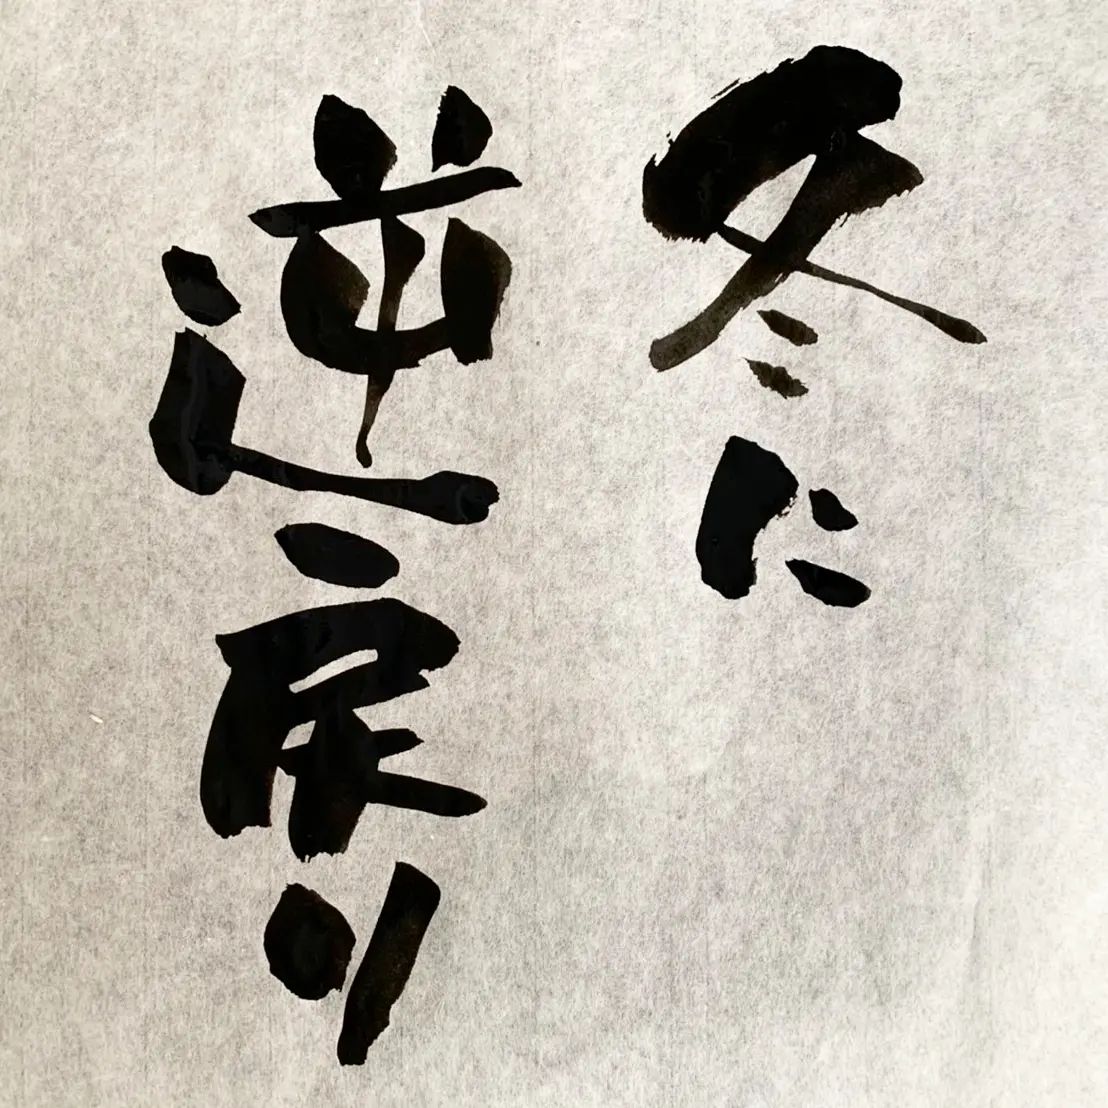 冬に
逆戻り